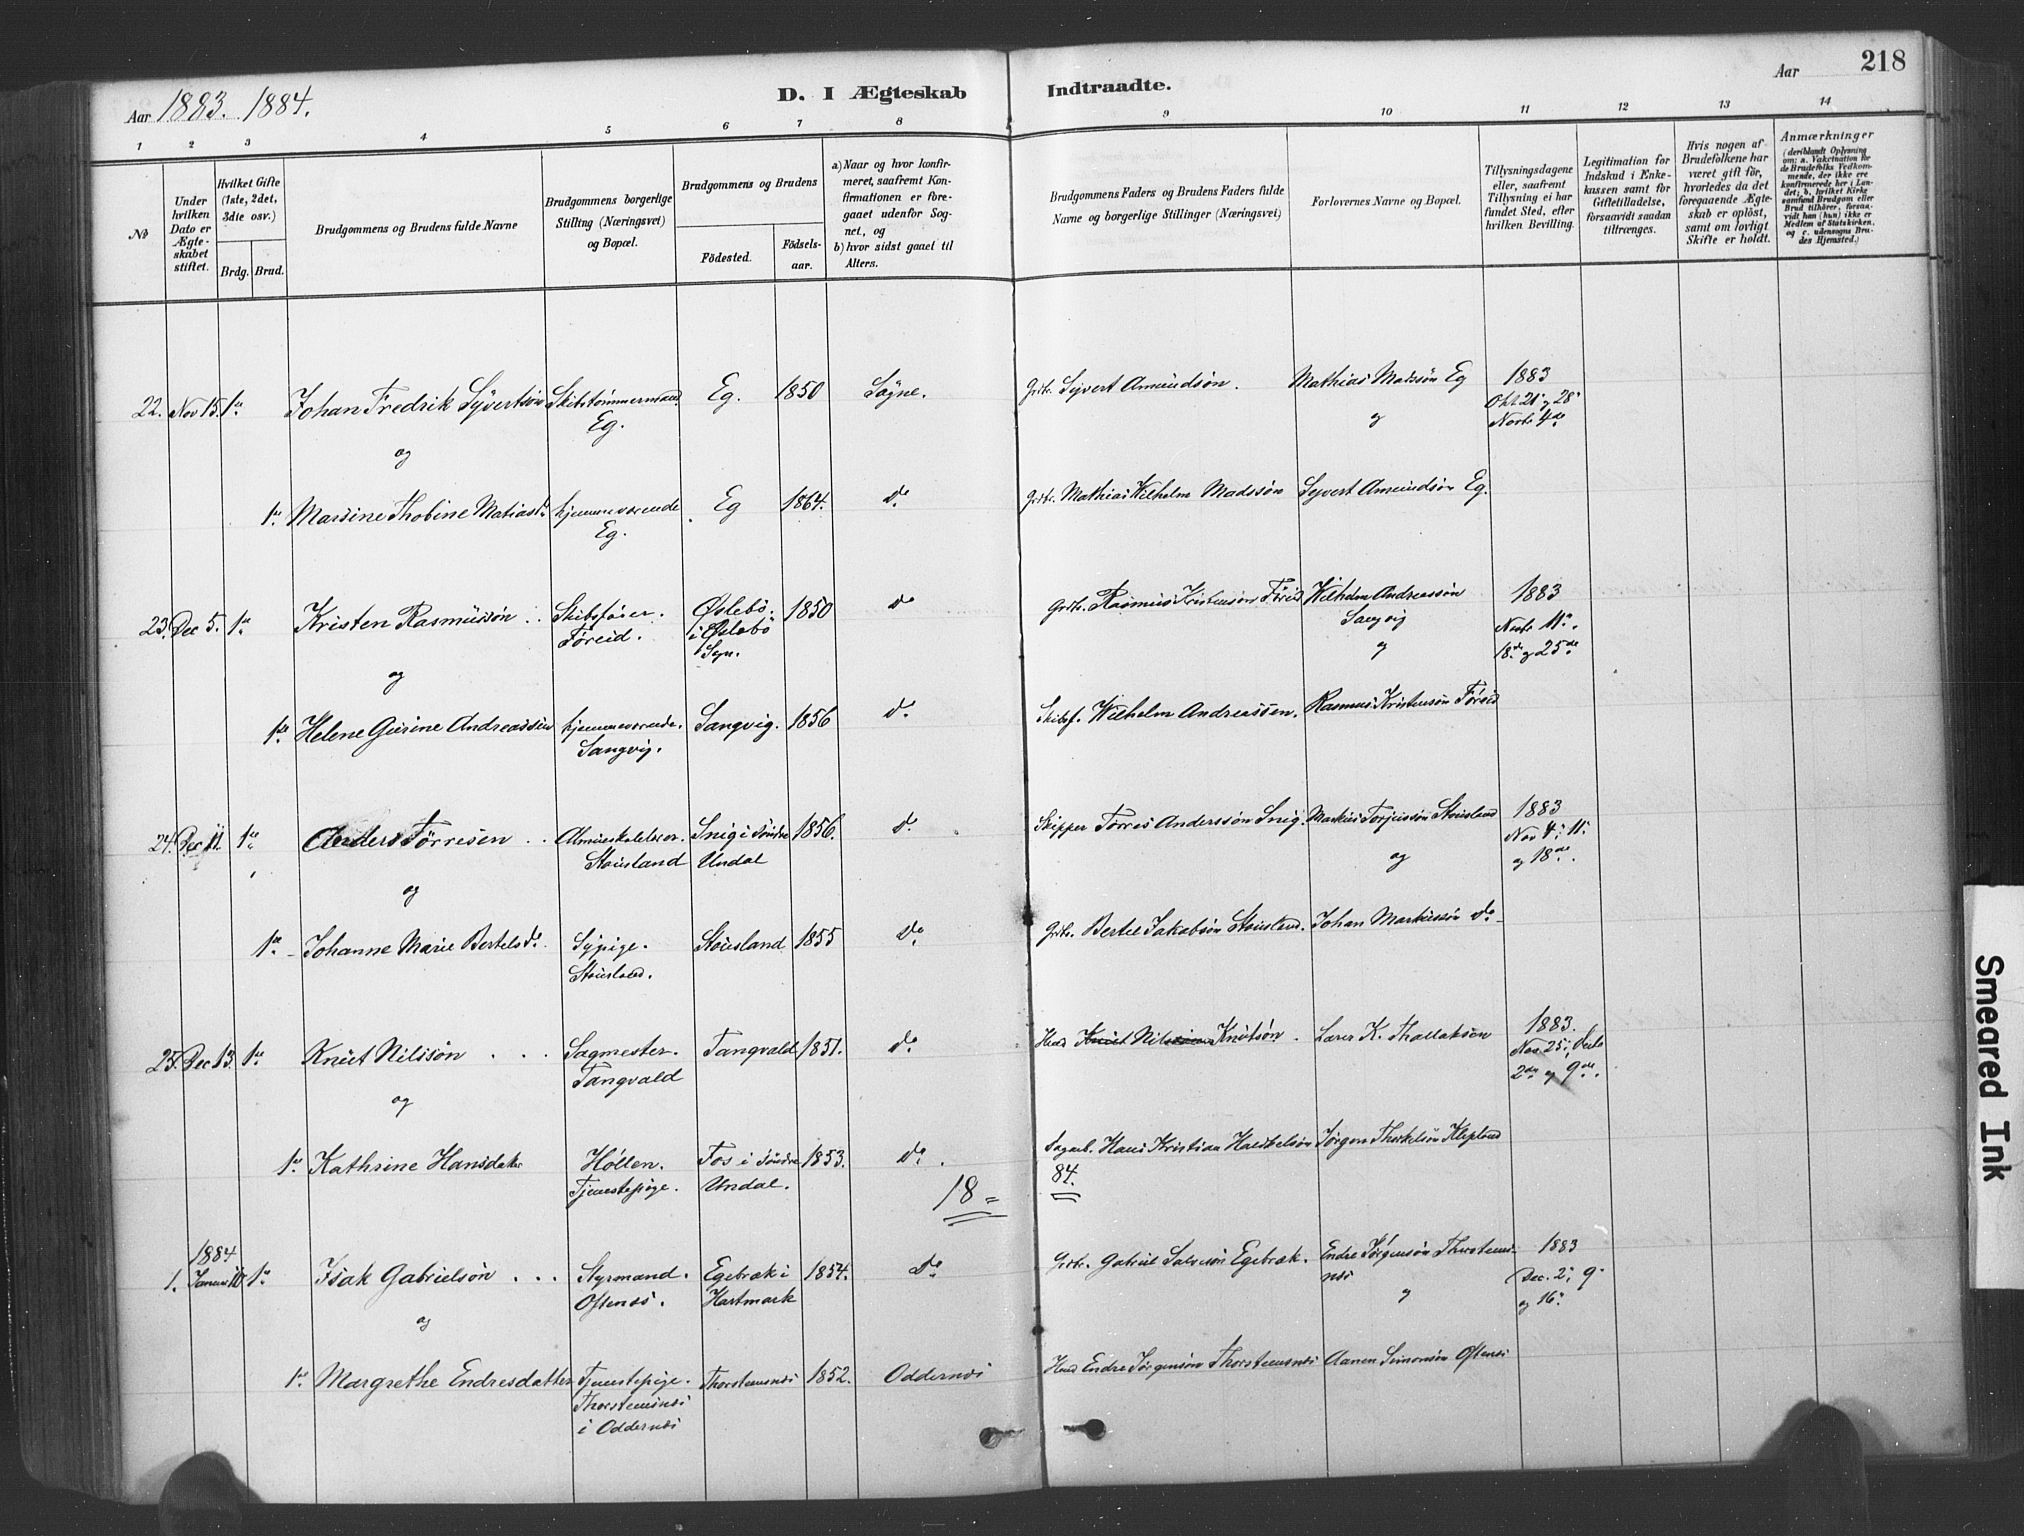 Aar 1883. 1884.
D. I Ægteskab Indtraadte.
Aar 218
1 2 3 4 5 6 7 8 9 10 11 12 13 14
№
Under hvilken Dato er Ægteskabet stiftet.
Hvilket Gifte (1ste, 2det, 3die osv.)
Brdg. Brud.
Brudgommens og Brudens fulde Navne
Brudgommens borgerlige Stilling (Næringsvei) og Bopæl.
Brudgommens og Brudens
Födested. Födselsaar.
a) Naar og hvor konfirmeret, saafremt Konfirmationen er foregaaet udenfor Sognet, og
b) hvor sidst gaaet til Alters.
Brudgommens Faders og Brudens Faders fulde Navne og borgerlige Stillinger (Næringsvei)
Forlovernes Navne og Bopæl.
Tillysningsdagene eller, saafremt Tillysning ei har fundet Sted, efter hvilken Bevilling.
Legitimation for Indskud i Enkekassen samt for Giftetilladelse, forsaavidt saadan tiltrænges.
Hvis nogen af Brudefolkene har været gift før, hvorledes da det foregaaende Ægteskab er oplöst, samt om lovligt Skifte er holdt.
Anmærkninger
(deriblandt Oplysning om: a. Vakcination for de Brudefolks Vedkommende, der ikke ere konfirmerede her i Landet; b. hvilket Kirkesamfund Brudgom eller Brud tilhörer, forsaavidt han (hun) ikke er Medlem af Statskirken, og c. udensogns Brudes Hjemsted.)
22. Nov 15. 1ste Johan Fredrik Syvertsön Skibstömmermand Eg. Eg. 1850 Søgne. Grdbr. Syvert Amundsön. Mathias Madssön Eg 1883
Okt 21 og 28
Novbr 4de
og og
1ste Marsine Thobine Matiasd. hjemmeværende Eg. Eg 1864. do Grdbr. Mathias Wilhelm Madssön Syvert Amundsön Eg.
23. Dec 5. 1ste Kristen Rasmussön Skibsfører. Føreid. Øslebö. i Øslebö Sogn. 1850 do Grdbr. Rasmus Kristensön Føreid Wilhelm Andreassön Sangvig 1883
Novbr 11te
18de og 25de
og og
1ste Helene Gurine Andreassen hjemmeværende. Sangvig. Sangvig. 1856 do Skibsf. Wilhelm Andreassen. Rasmus Kristensön Føreid
24. Dec 11. 1ste Anders Tørresen Almueskolelærer. Stousland Snig i Söndre Undal 1856. do Skipper Tørres Anderssön Snig. Markus Torjussön Stousland 1883
Nov 4, 11
og 18de.
og og
1ste Johanne Marie Bertelsdr Sypige. Stousland. Stousland 1855 do Grdbr. Bertel Jakobsön Stousland. Johan Markussön do
25. Dec 13. 1ste Knut Nilssön Sagmester. Tangvald Tangvald 1851. do Hmd Nils Knutsön. Lærer K. Thallaksen 1883.
Nov 25, Decbr
2den og 9de.
og
1ste Kathrine Hansdatter Höllen. Tjenestepige. Fos i Söndre Undal. 1853. do. Hans Kristian Jörgen Thorkelsön Klepland
18 84.
1884
1. Januar 10 1ste Isak Gabrielsön Styrmand. Oftenæs. Egebræk i Hartmark 1854. do Grdbr. Gabriel Salvesön Egebræk. Endre Jörgensön Thorstensnæs 1883
Dec. 2, 9
og 16.
og og
1ste Margrethe Endresdatter Tjenestepige. Thorstensnæs i Oddernæs Thorstensnæs 1852. Oddernæs Hmd Endre Jörgensön Thorstensnæs Aanen Simonsön Oftenæs
Smeared Ink